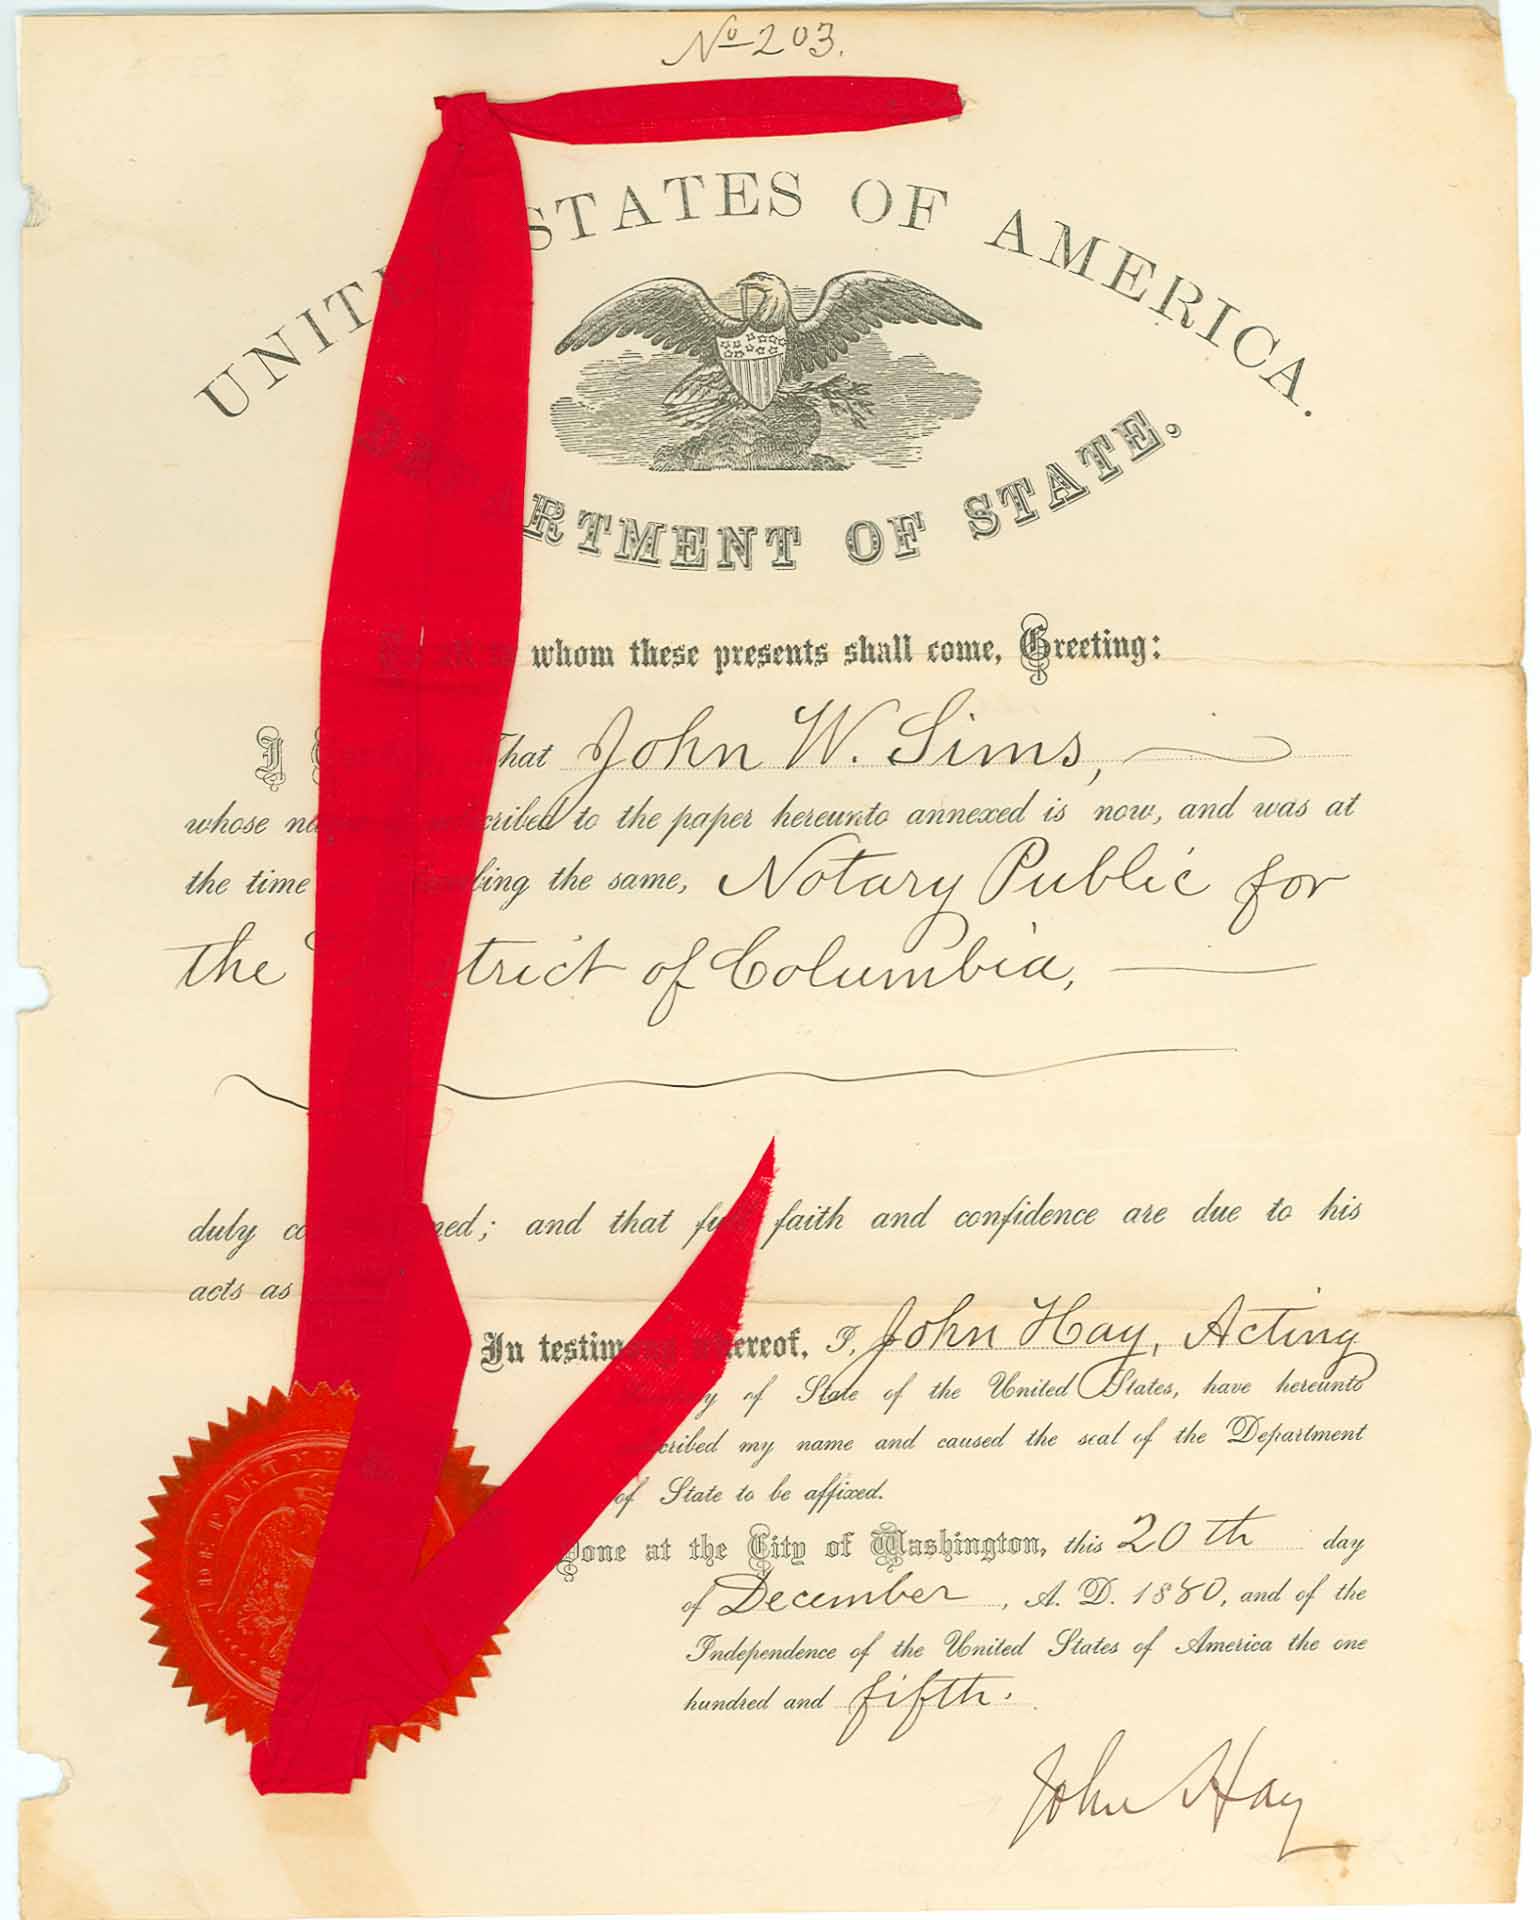 No 203.
UNITED STATES OF AMERICA.
DEPARTMENT OF STATE.
To all to whom these presents shall come, Greeting:
I That John W. Sims,
whose name subscribed to the paper hereunto annexed is now, and was at
the time the same, Notary Public for
the District of Columbia,
duly commissioned; and that full faith and confidence are due to his
acts as
In testimony whereof, I, John Hay, Acting
Secretary of State of the United States, have hereunto
subscribed my name and caused the seal of the Department
of State to be affixed.
Done at the City of Washington, this 20th day
of December, A. D. 1880, and of the
Independence of the United States of America the one
hundred and fifth.
John Hay
DEPARTMENT